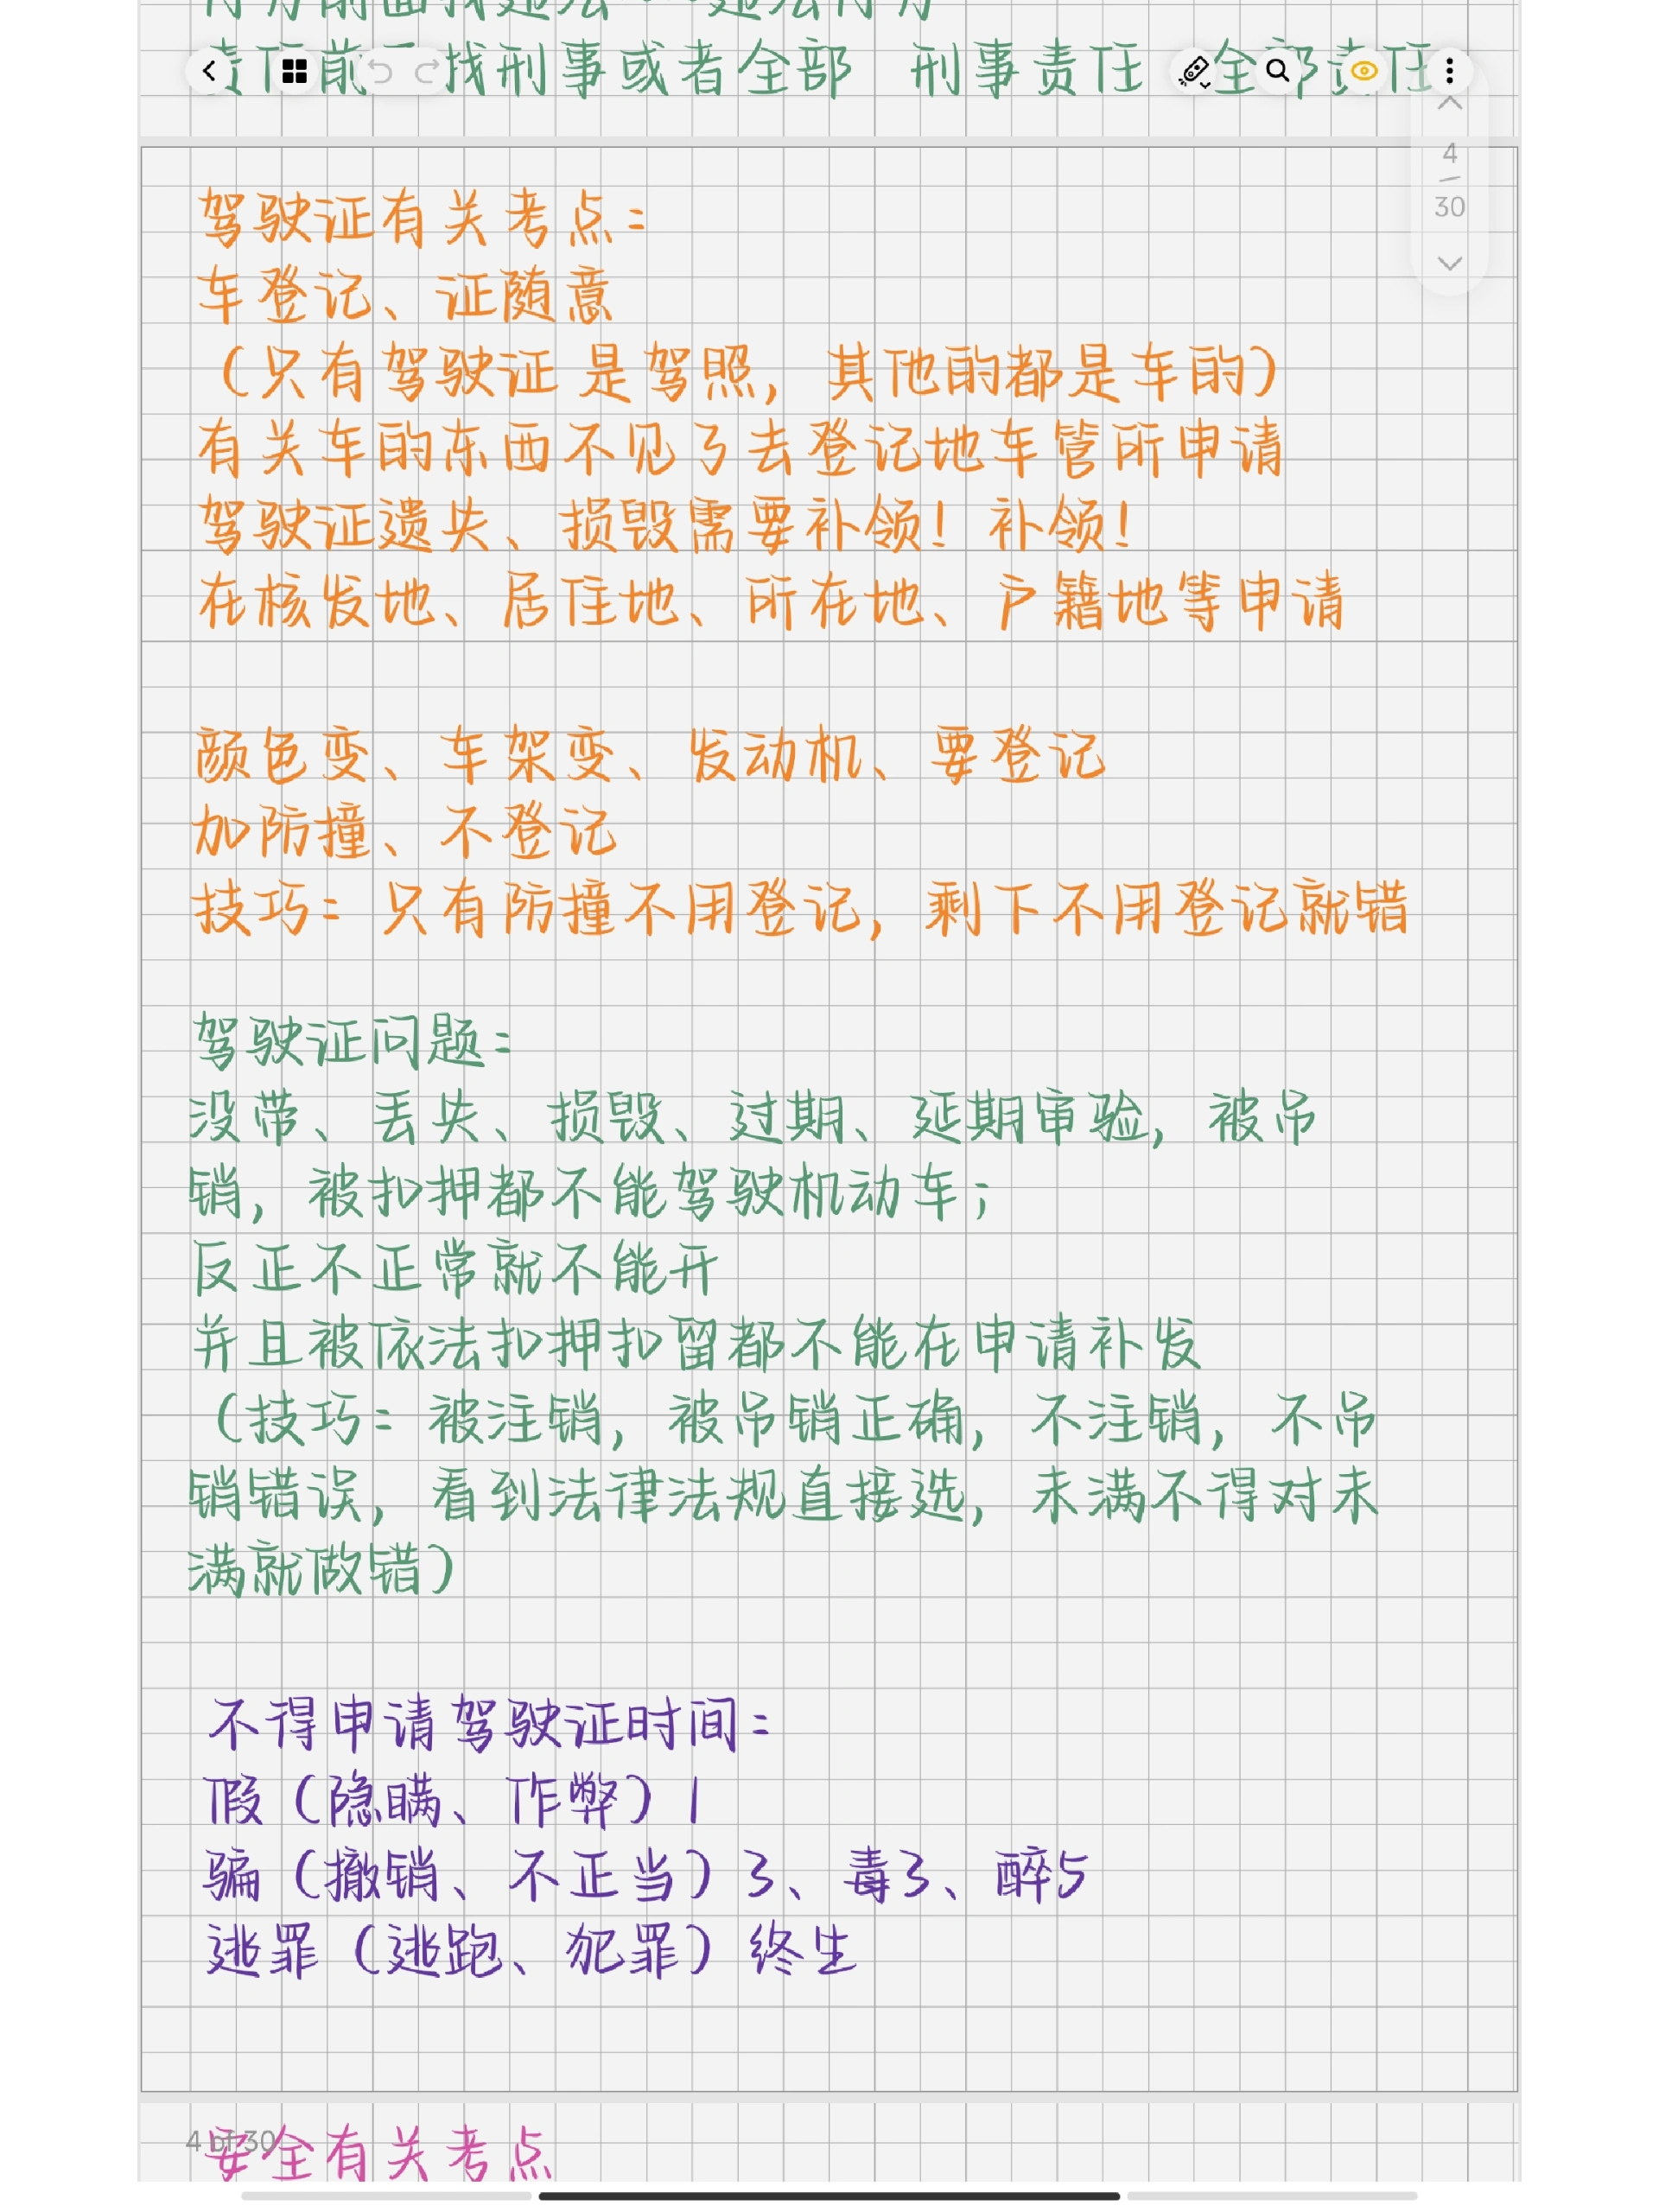 责任前面找刑事或者全部 刑事责任 全部责任
4
30
驾驶证有关考点：
车登记、证随意
（只有驾驶证是驾照，其他的都是车的）
有关车的东西不见了去登记地车管所申请
驾驶证遗失、损毁需要补领！补领！
在核发地、居住地、所在地、户籍地等申请
颜色变、车架变、发动机、要登记
加防撞、不登记
技巧：只有防撞不用登记，剩下不用登记就错
驾驶证问题：
没带、丢失、损毁、过期、延期审验，被吊
销，被扣押都不能驾驶机动车；
反正不正常就不能开
并且被依法扣押扣留都不能在申请补发
（技巧：被注销，被吊销正确，不注销，不吊
销错误，看到法律法规直接选，未满不得对未
满就做错）
不得申请驾驶证时间：
假（隐瞒、作弊）1
骗（撤销、不正当）3、毒3、醉5
逃罪（逃跑、犯罪）终生
4 of 30
安全有关考点